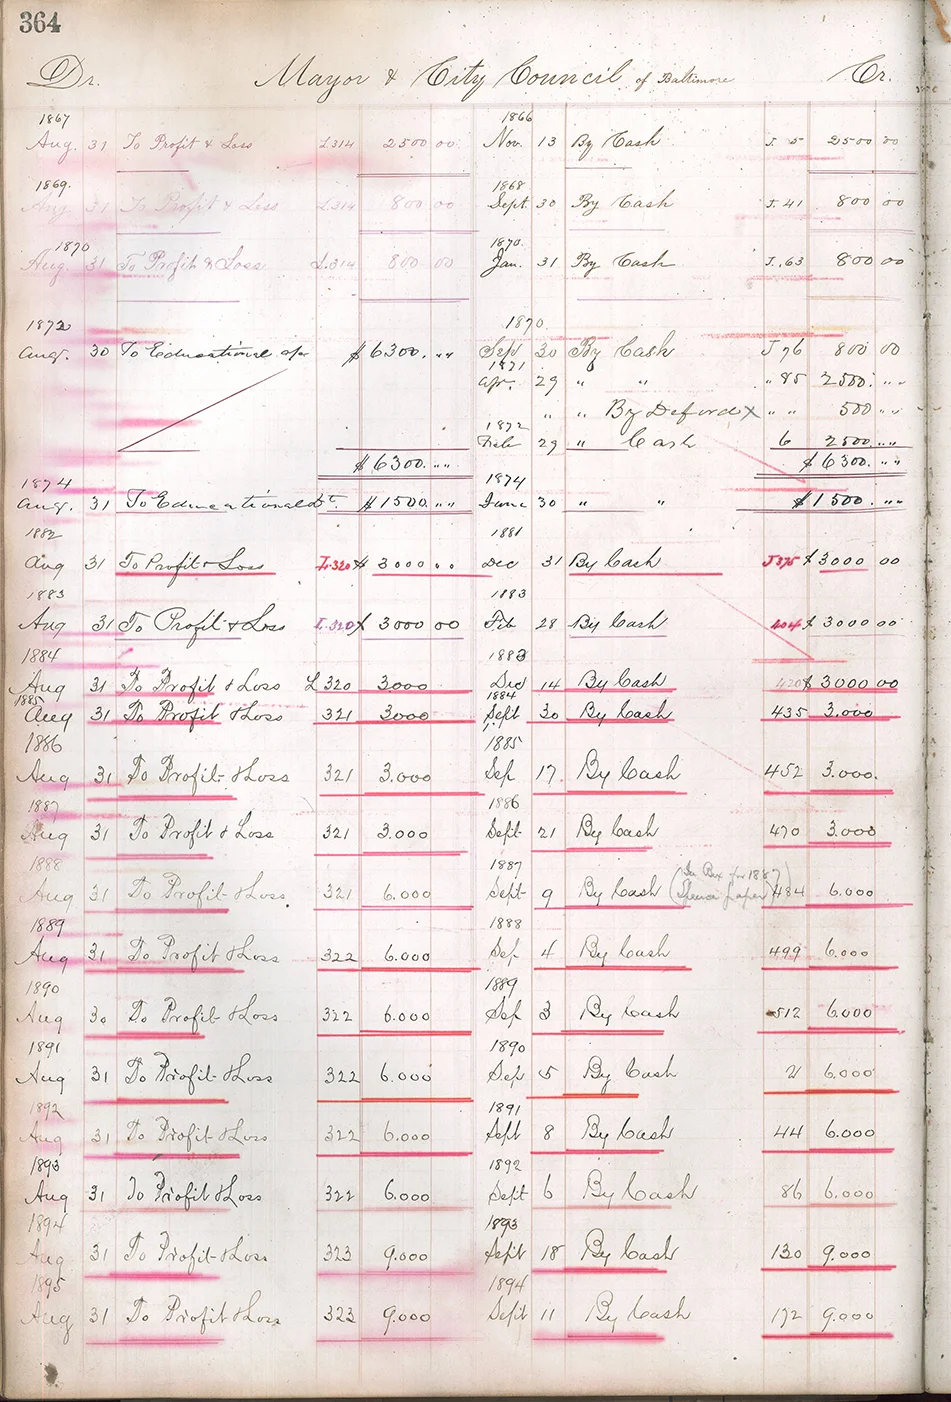 364
Dr. Mayor & City Council of Baltimore Cr.
1867 1866
Aug. 31 To Profit & Loss L.314 2500 00 Nov. 13 By Cash J. 5 2500 00
1869. 1868
Aug 31 To Profit & Loss L.314 800 00 Sept. 30 By Cash J. 41 800 00
1870 1870.
Aug. 31 To Profit & Loss L.314 800 00 Jan. 31 By Cash J. 63 800 00
1872 1870.
Aug. 30 To Educational $6300. " " Sept 30 By Cash J 76 800 00
1871
Apr. 29 " " " 85 2500. " "
" " By Deford X " " 500 " "
1872
Feb 29 " Cash 6 2500. " "
$6300. " " $6300. " "
1874 1874
Aug. 31 To Educational $1500. " " June 30 " " $1500. " "
1882 1881
Aug 31 To Profit & Loss L.320 $ 3000 00 Dec 31 By Cash J 375 $3000 00
1883 1883
Aug 31 To Profit & Loss L.320 $ 3000 00 Feb 28 By Cash 404 $3000 00
1884 1883
Aug 31 To Profit & Loss L 320 3000 Dec 14 By Cash 420 $3000 00
1885 1884
Aug 31 To Profit & Loss 321 3000 Sept 30 By Cash 435 3.000
1886 1885
Aug 31 To Profit & Loss 321 3.000 Sep 17. By Cash 452 3.000.
1887 1886
Aug 31 To Profit & Loss 321 3.000 Sept 21 By Cash 470 3.000
1888 1887
Aug 31 To Profit & Loss 321 6.000 Sept 9 By Cash (In Box for 1887 Spence paper) 484 6.000
1889 1888
Aug 31 To Profit & Loss 322 6.000 Sep 4 By Cash 499 6.000
1890 1889
Aug 30 To Profit & Loss 322 6.000 Sep 3 By Cash 512 6.000
1891 1890
Aug 31 To Profit & Loss 322 6.000 Sep 5 By Cash 2 6.000
1892 1891
Aug 31 To Profit & Loss 322 6.000 Sept 8 By Cash 44 6.000
1893 1892
Aug 31 To Profit & Loss 322 6.000 Sept 6 By Cash 86 6.000
1894 1893
Aug 31 To Profit & Loss 323 9.000 Sept 18 By Cash 130 9.000
1895 1894
Aug 31 To Profit & Loss 323 9.000 Sept 11 By Cash 172 9.000